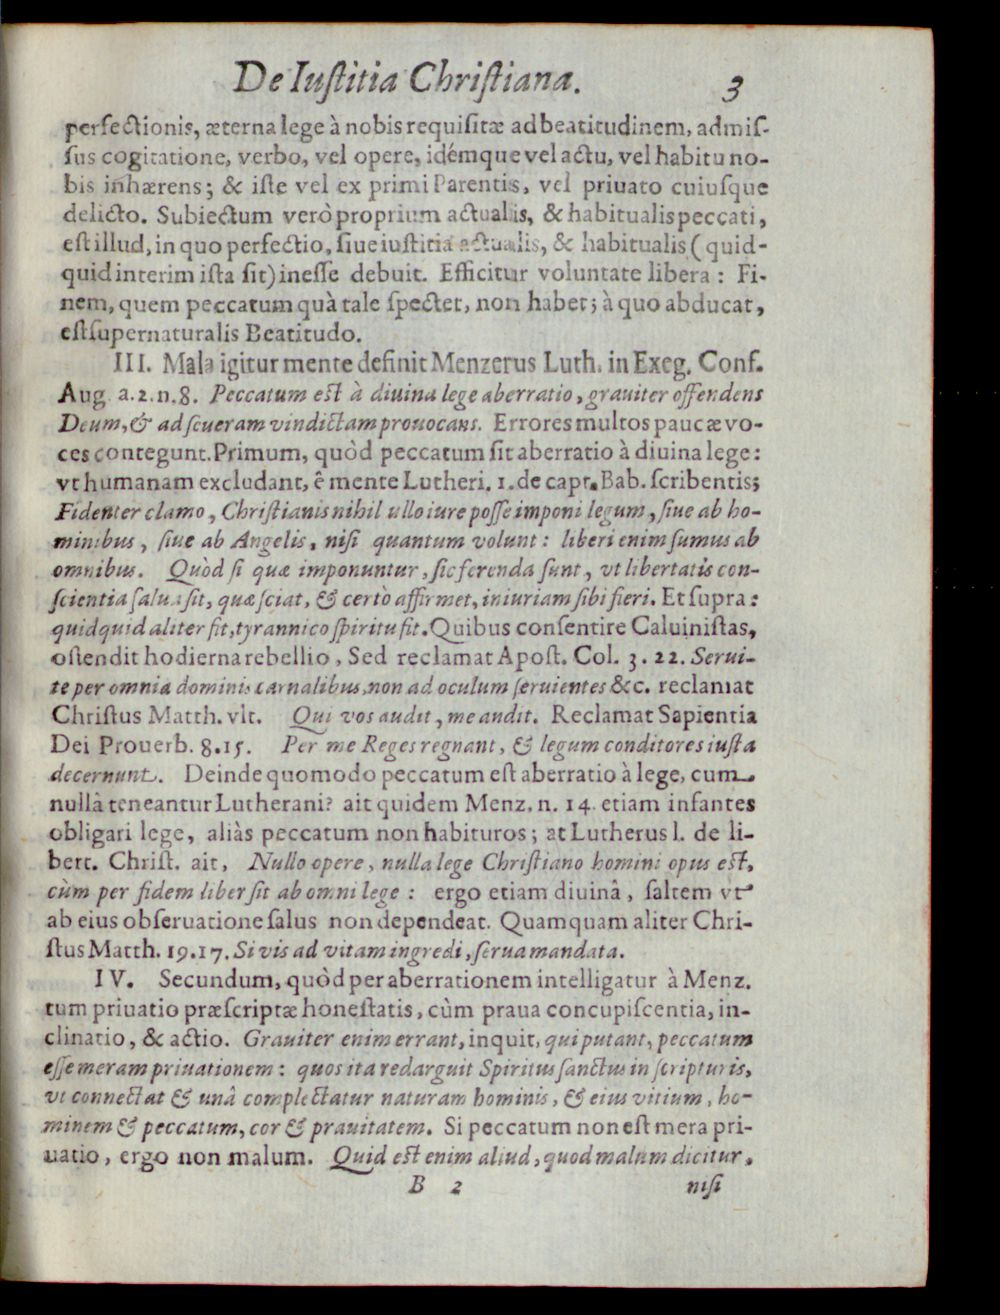 De Iustitia Christiana. 3
perfectionis, æterna lege à nobis requisitæ ad beatitudinem, admis-
sus cogitatione, verbo, vel opere, idémque vel actu, vel habitu no-
bis inhærens; & iste vel ex primi Parentis, vel priuato cuiusque
delicto. Subiectum verò proprium actualis, & habitualis peccati,
est illud, in quo perfectio, siue iustitia actualis, & habitualis (quid-
quid interim ista sit) inesse debuit. Efficitur voluntate libera: Fi-
nem, quem peccatum quà tale spectet, non habet; à quo abducat,
est supernaturalis Beatitudo.
III. Mala igitur mente definit Menzerus Luth. in Exeg. Conf.
Aug. a. 2. n. 8. Peccatum est à diuina lege aberratio, grauiter offendens
Deum, & ad seueram vindictam prouocans. Errores multos paucæ vo-
ces contegunt. Primum, quòd peccatum sit aberratio à diuina lege:
vt humanam excludant, è mente Lutheri. 1. de capt. Bab. scribentis;
Fidenter clamo, Christianis nihil ullo iure posse imponi legum, siue ab ho-
minibus, siue ab Angelis, nisi quantum volunt: liberi enim sumus ab
omnibus. Quòd si quæ imponuntur, sic ferenda sunt, vt libertatis con-
scientia salua sit, quæ sciat, & certò affirmet, iniuriam sibi fieri. Et supra:
quidquid aliter fit, tyrannico spiritu fit. Quibus consentire Caluinistas,
ostendit hodierna rebellio, Sed reclamat Apost. Col. 3. 22. Serui-
te per omnia dominis carnalibus, non ad oculum seruientes &c. reclamat
Christus Matth. vlt. Qui vos audit, me audit. Reclamat Sapientia
Dei Prouerb. 8. 15. Per me Reges regnant, & legum conditores iusta
decernunt. Deinde quomodo peccatum est aberratio à lege, cum
nullâ teneantur Lutherani? ait quidem Menz. n. 14. etiam infantes
obligari lege, aliàs peccatum non habituros; at Lutherus l. de li-
bert. Christ. ait, Nullo opere, nulla lege Christiano homini opus est,
cùm per fidem liber sit ab omni lege: ergo etiam diuinâ, saltem vt
ab eius obseruatione salus non dependeat. Quamquam aliter Chri-
stus Matth. 19. 17. Si vis ad vitam ingredi, serua mandata.
IV. Secundum, quòd per aberrationem intelligatur à Menz.
tum priuatio præscriptæ honestatis, cùm praua concupiscentia, in-
clinatio, & actio. Grauiter enim errant, inquit, qui putant, peccatum
esse meram priuationem: quos ita redarguit Spiritus sanctus in scripturis,
vt connectat & unâ complectatur naturam hominis, & eius vitium, ho-
minem & peccatum, cor & prauitatem. Si peccatum non est mera pri-
uatio, ergo non malum. Quid est enim aliud, quod malum dicitur,
B 2 nisi